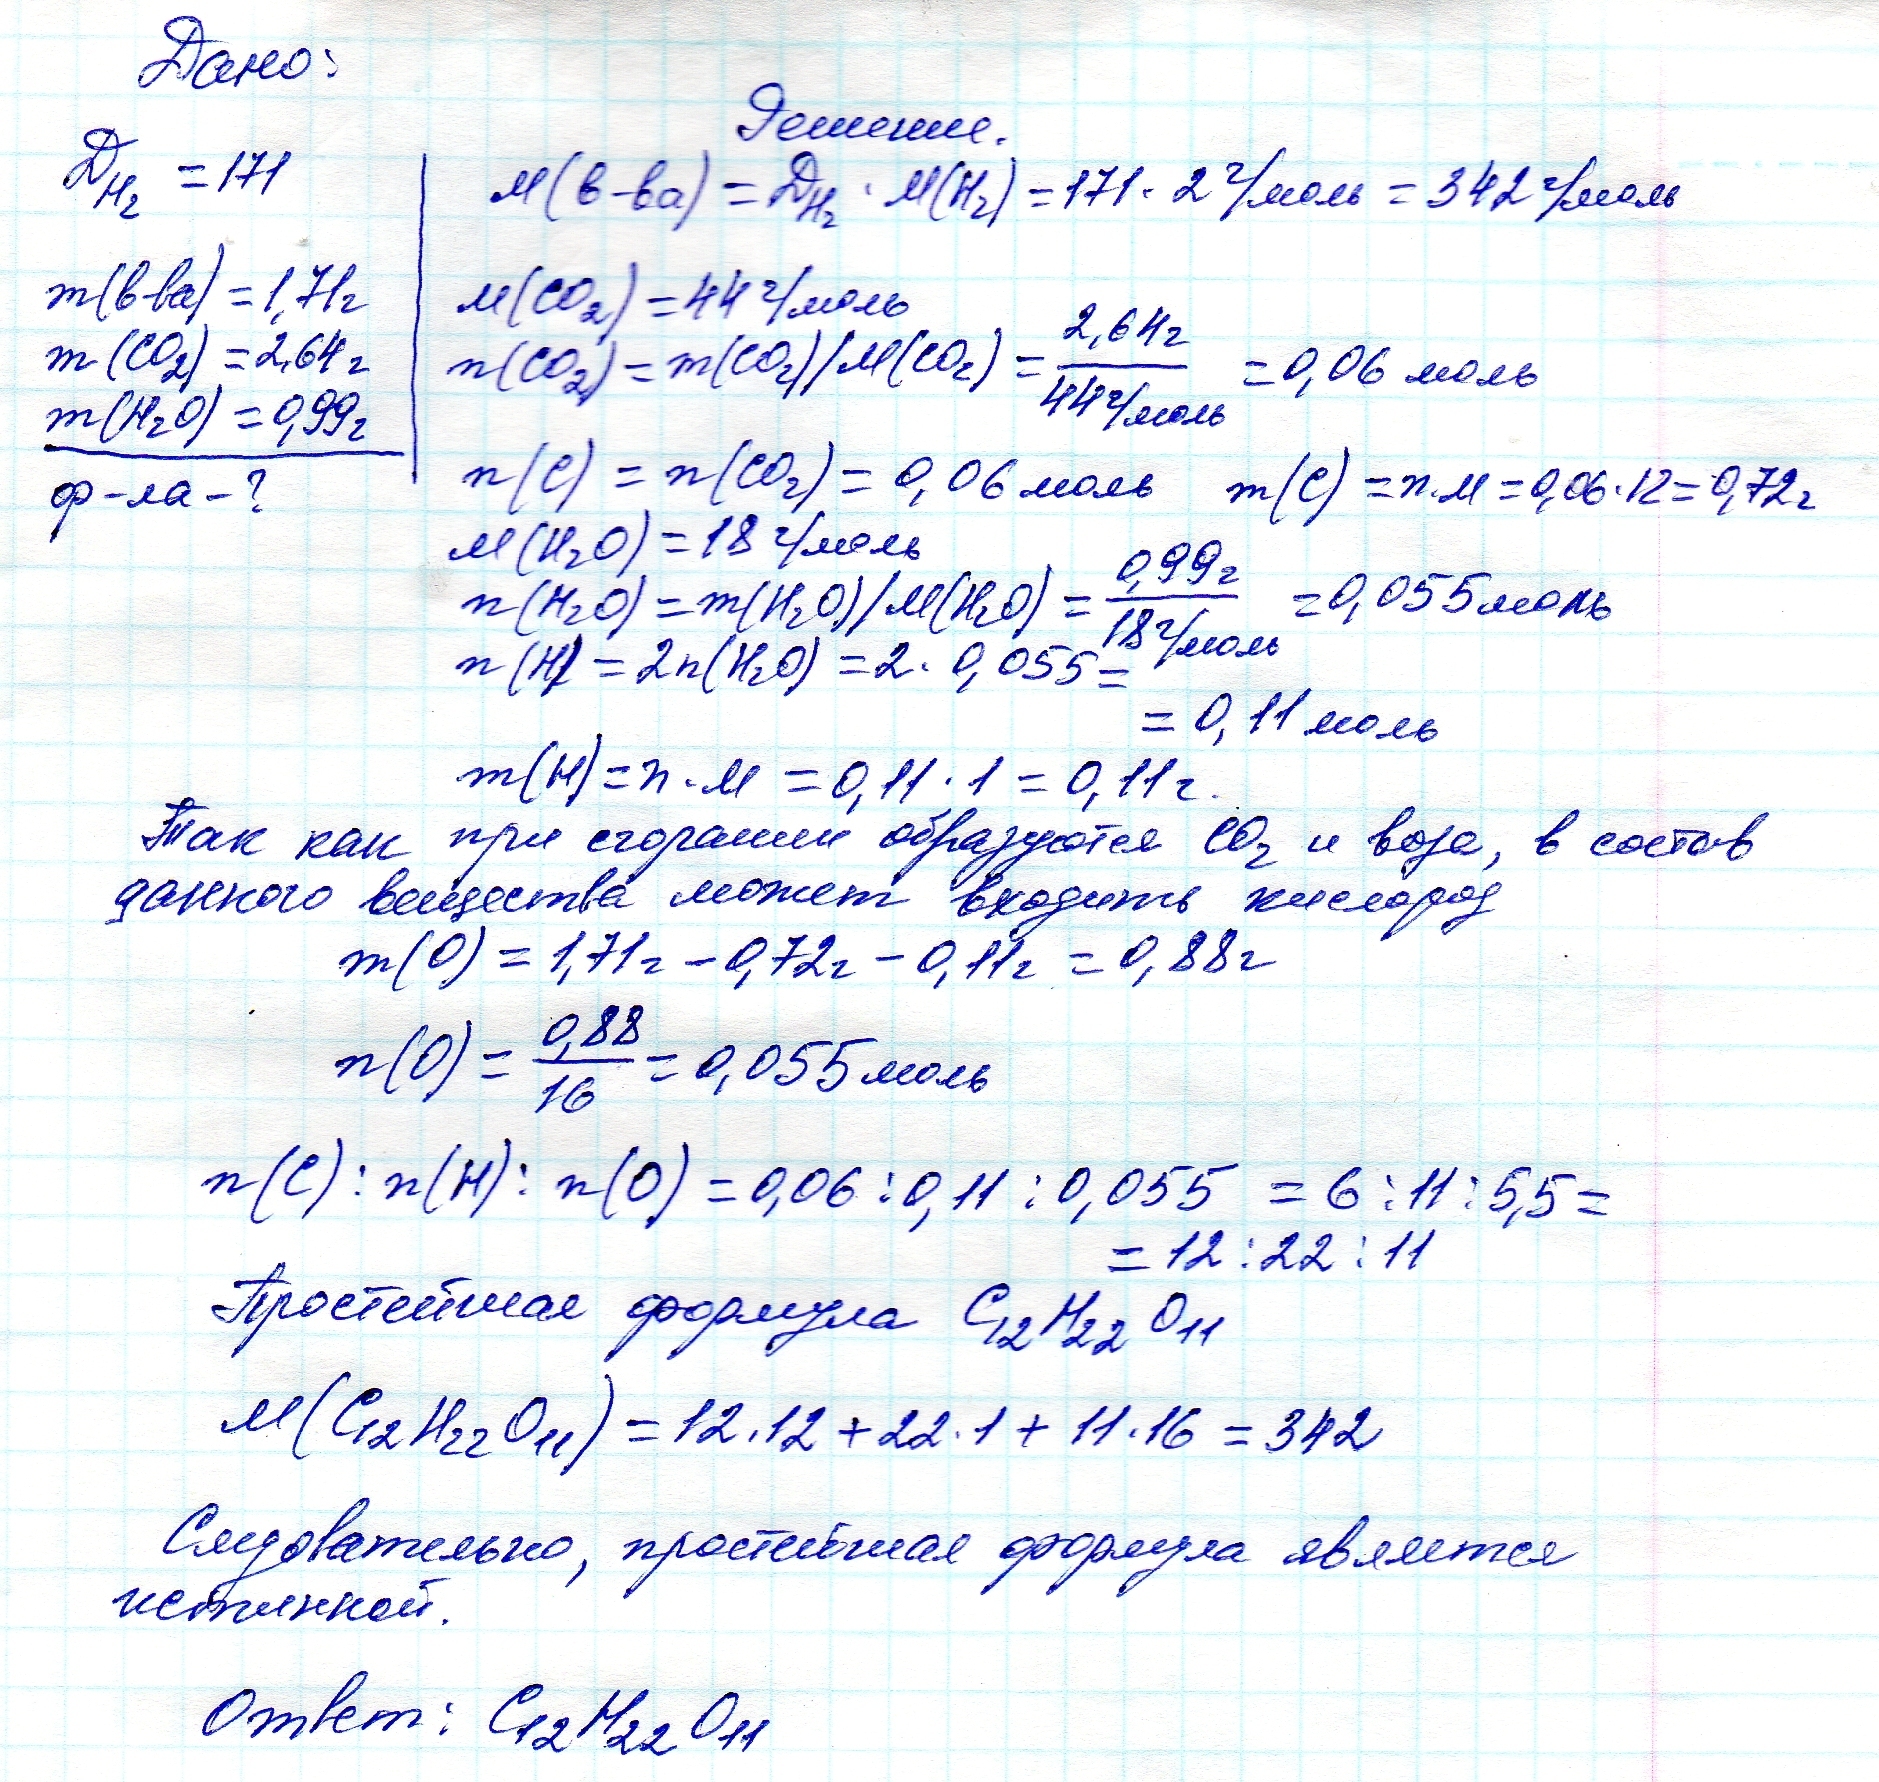 Дано:
Решение.
D_H2 = 171
m(в-ва) = 1,71г
m(CO2) = 2,64г
m(H2O) = 0,99г
ф-ла - ?
M(в-ва) = D_H2 · M(H2) = 171 · 2 г/моль = 342 г/моль
M(CO2) = 44 г/моль
n(CO2) = m(CO2)/M(CO2) = 2,64г / 44 г/моль = 0,06 моль
n(C) = n(CO2) = 0,06 моль m(C) = n·M = 0,06·12 = 0,72г
M(H2O) = 18 г/моль
n(H2O) = m(H2O)/M(H2O) = 0,99г / 18 г/моль = 0,055 моль
n(H) = 2n(H2O) = 2 · 0,055 =
= 0,11 моль
m(H) = n·M = 0,11 · 1 = 0,11г.
Так как при сгорании образуются CO2 и вода, в состав
данного вещества может входить кислород
m(O) = 1,71г - 0,72г - 0,11г = 0,88г
n(O) = 0,88 / 16 = 0,055 моль
n(C) : n(H) : n(O) = 0,06 : 0,11 : 0,055 = 6 : 11 : 5,5 =
= 12 : 22 : 11
Простейшая формула C12H22O11
M(C12H22O11) = 12·12 + 22·1 + 11·16 = 342
Следовательно, простейшая формула является
истинной.
Ответ: C12H22O11